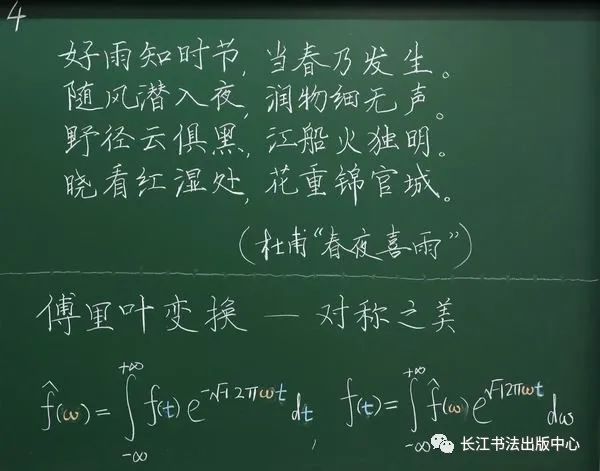 4
好雨知时节,当春乃发生。
随风潜入夜,润物细无声。
野径云俱黑,江船火独明。
晓看红湿处,花重锦官城。
(杜甫“春夜喜雨”)
傅里叶变换 — 对称之美
f̂(ω) = ∫_{-∞}^{+∞} f(t) e^{-√-1 2πωt} dt, f(t) = ∫_{-∞}^{+∞} f̂(ω) e^{√-1 2πωt} dω
长江书法出版中心